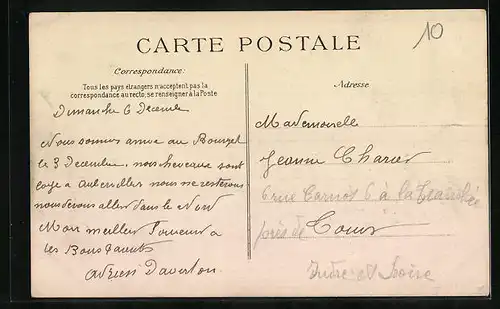 10
CARTE POSTALE
Correspondance:
Tous les pays étrangers n'acceptent pas la
correspondance au recto, se renseigner à la Poste
Dimanche 6 Decembre
Nous sommes arrivé au Bourget
le 3 Decembre, nos cheveaux sont
a Auberviller nous ne resterons
nous derons aller dans le Nord
Mon meilleur Souvenir a
tes Bons Parents
Adrien Daverton
Adresse
Mademoiselle
Jeanne Charier
6 rue Carnot 6 à la Tranchée
près de Tours
Indre et Loire